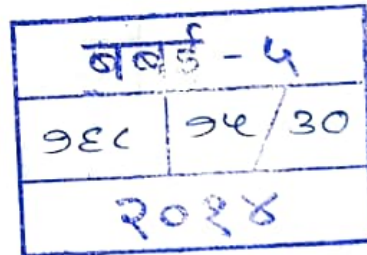 बबई - ५
१६८ १५/३०
२०१४